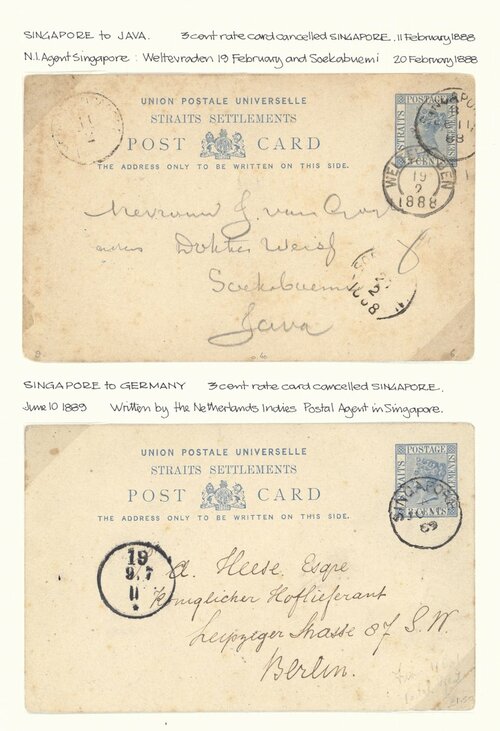 SINGAPORE to JAVA. 3 cent rate card cancelled SINGAPORE. 11 February 1888
N.I. Agent Singapore : Weltevraden 19 February and Soekabuemi 20 February 1888
UNION POSTALE UNIVERSELLE
STRAITS SETTLEMENTS
POST CARD
THE ADDRESS ONLY TO BE WRITTEN ON THIS SIDE.
STRAITS POSTAGE
CENTS
SINGAPORE
88
19
2
1888
Mevrouw J. van
Dokter
Soekabuemi
Java
SINGAPORE to GERMANY 3 cent rate card cancelled SINGAPORE.
June 10 1889 Written by the Netherlands Indies Postal Agent in Singapore.
UNION POSTALE UNIVERSELLE
STRAITS SETTLEMENTS
POST CARD
THE ADDRESS ONLY TO BE WRITTEN ON THIS SIDE.
STRAITS POSTAGE
CENTS
SINGAPORE
89
19
9. 7
11
A. Heese Esqre
Königlicher Hoflieferant
Leipzeger Strasse 87 S.W.
Berlin.